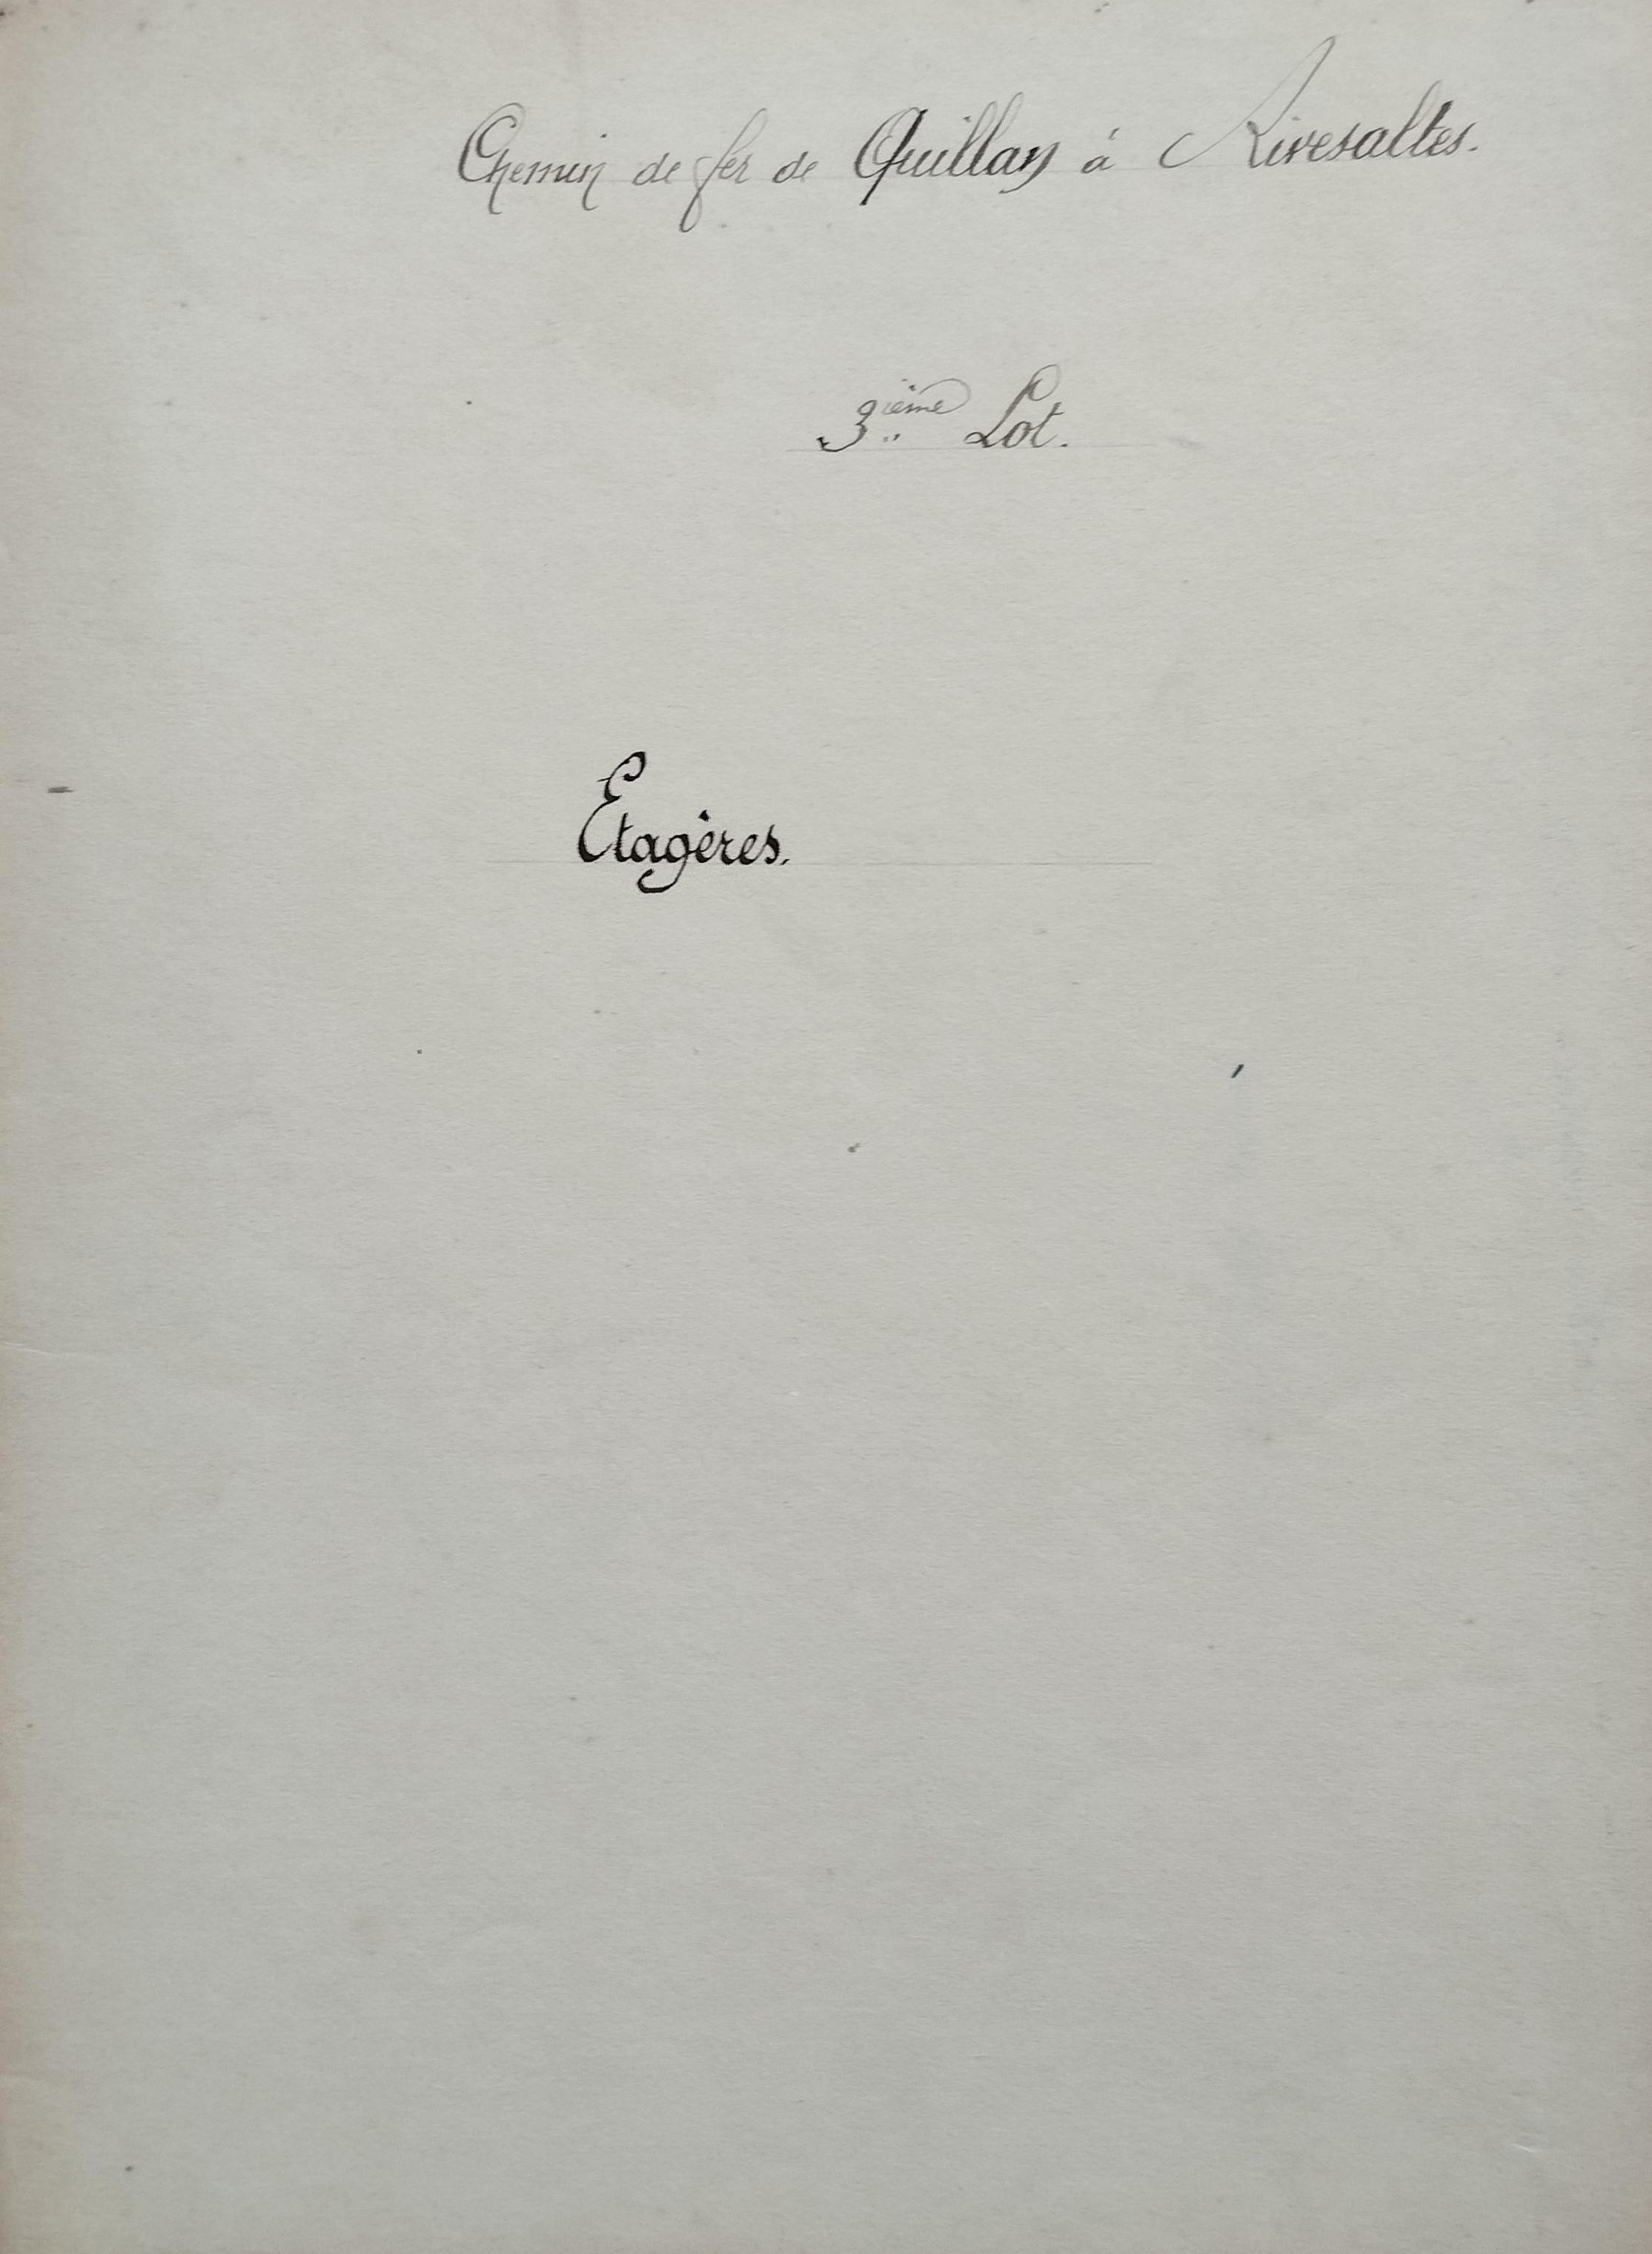 Chemin de fer de Quillan à Rivesaltes.
3ième Lot.
Etagères.